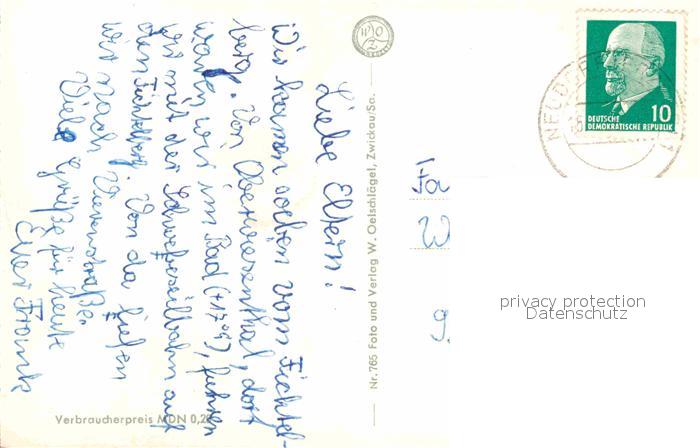 Liebe Eltern!
Wir kamen soeben vom Fichtel-
berg. Von Oberwiesenthal, dort
waren wir im Bad (+17°), fuhren
wir mit der Schwebeseilbahn auf
den Fichtelberg. Von da liefen
wir nach
Viele Grüße für heute
Euer Frank
Verbraucherpreis MDN 0,20
Nr. 765 Foto und Verlag W. Oelschlägel, Zwickau/Sa.
WOZ
10
DEUTSCHE
DEMOKRATISCHE REPUBLIK
Fa
W
g.
privacy protection
Datenschutz